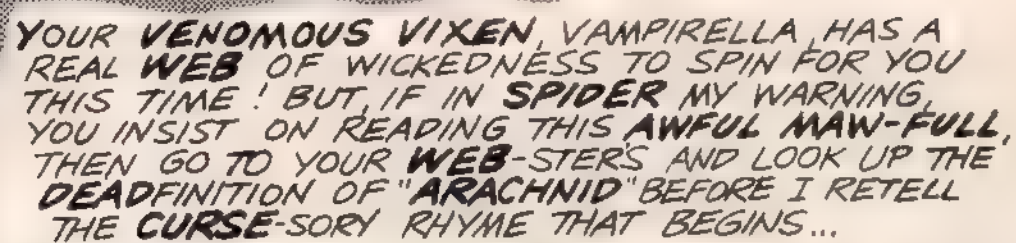 YOUR VENOMOUS VIXEN, VAMPIRELLA, HAS A
REAL WEB OF WICKEDNESS TO SPIN FOR YOU
THIS TIME! BUT, IF IN SPIDER MY WARNING,
YOU INSIST ON READING THIS AWFUL MAW-FULL,
THEN GO TO YOUR WEB-STER'S AND LOOK UP THE
DEADFINITION OF "ARACHNID" BEFORE I RETELL
THE CURSE-SORY RHYME THAT BEGINS...